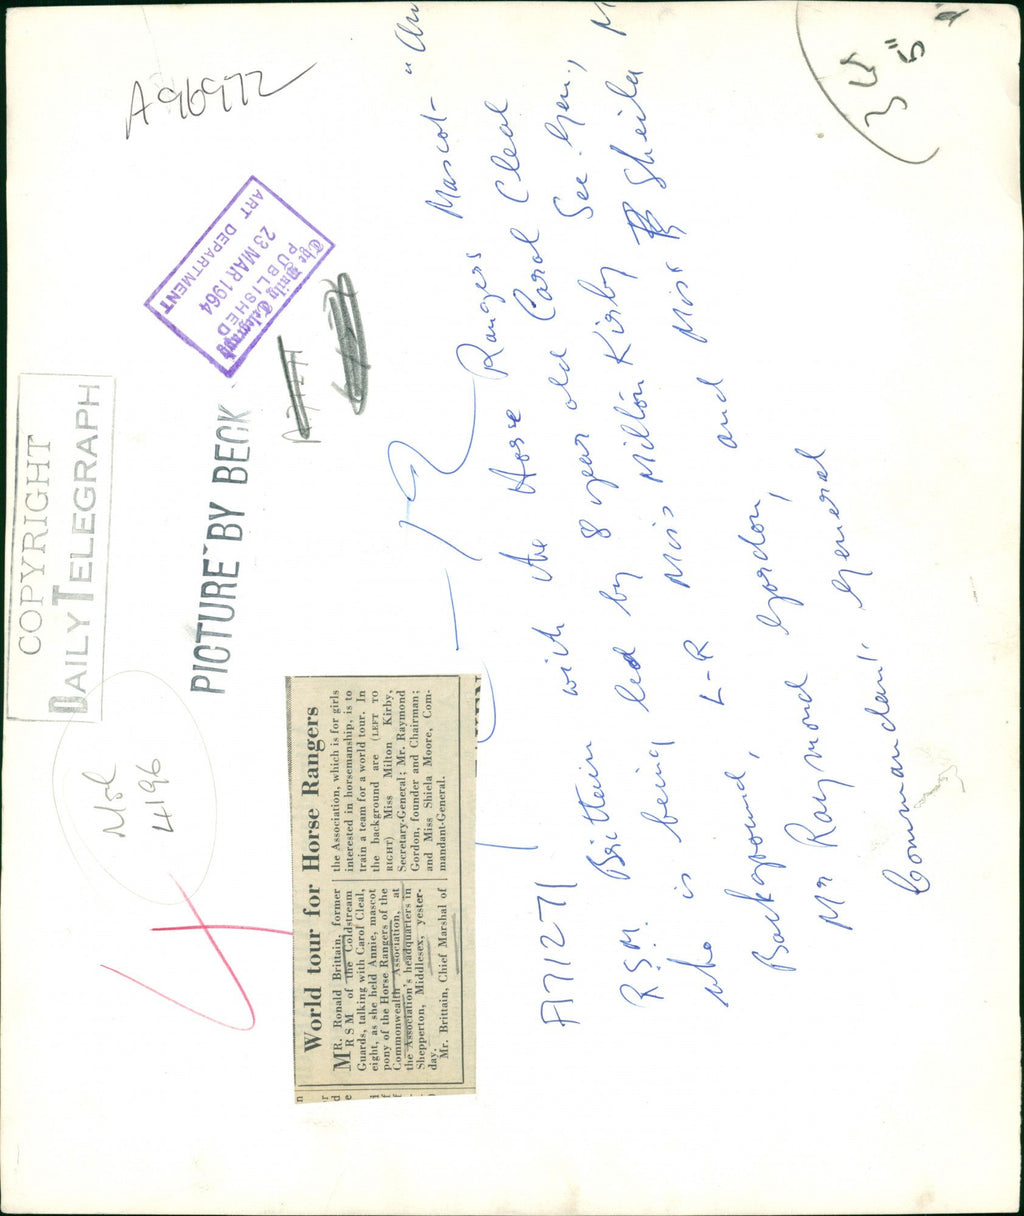 A96972
COPYRIGHT
DAILY TELEGRAPH
The Daily Telegraph
PUBLISHED
23 MAR 1964
ART DEPARTMENT
PICTURE BY BECK
4196
World tour for Horse Rangers
MR. Ronald Brittain, former
R S M of the Coldstream
Guards, talking with Carol Cleal,
eight, as she held Annie, mascot
pony of the Horse Rangers of the
Commonwealth Association, at
the Association's headquarters in
Shepperton, Middlesex, yester-
day.
Mr. Brittain, Chief Marshal of
the Association, which is for girls
interested in horsemanship, is to
train a team for a world tour. In
the background are (LEFT TO
RIGHT) Miss Milton Kirby,
Secretary-General; Mr. Raymond
Gordon, founder and Chairman;
and Miss Shiela Moore, Com-
mandant-General.
A71271
R.S.M. Brittain with the Horse Rangers Mascot - "
who is being led by 8 year old Carol Cleal
Background, L-R Miss Milton Kirby Sec. Gen.,
Mr Raymond Gordon, and Miss Sheila
Commandant General